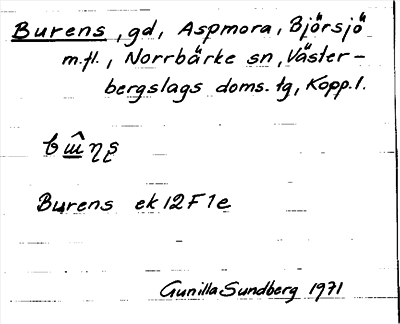 Burens, gd, Aspmora, Björsjö
m.fl., Norrbärke sn, Väster-
bergslags doms. tg, Kopp. l.
Burens ek 12 F 1e
Gunilla Sundberg 1971